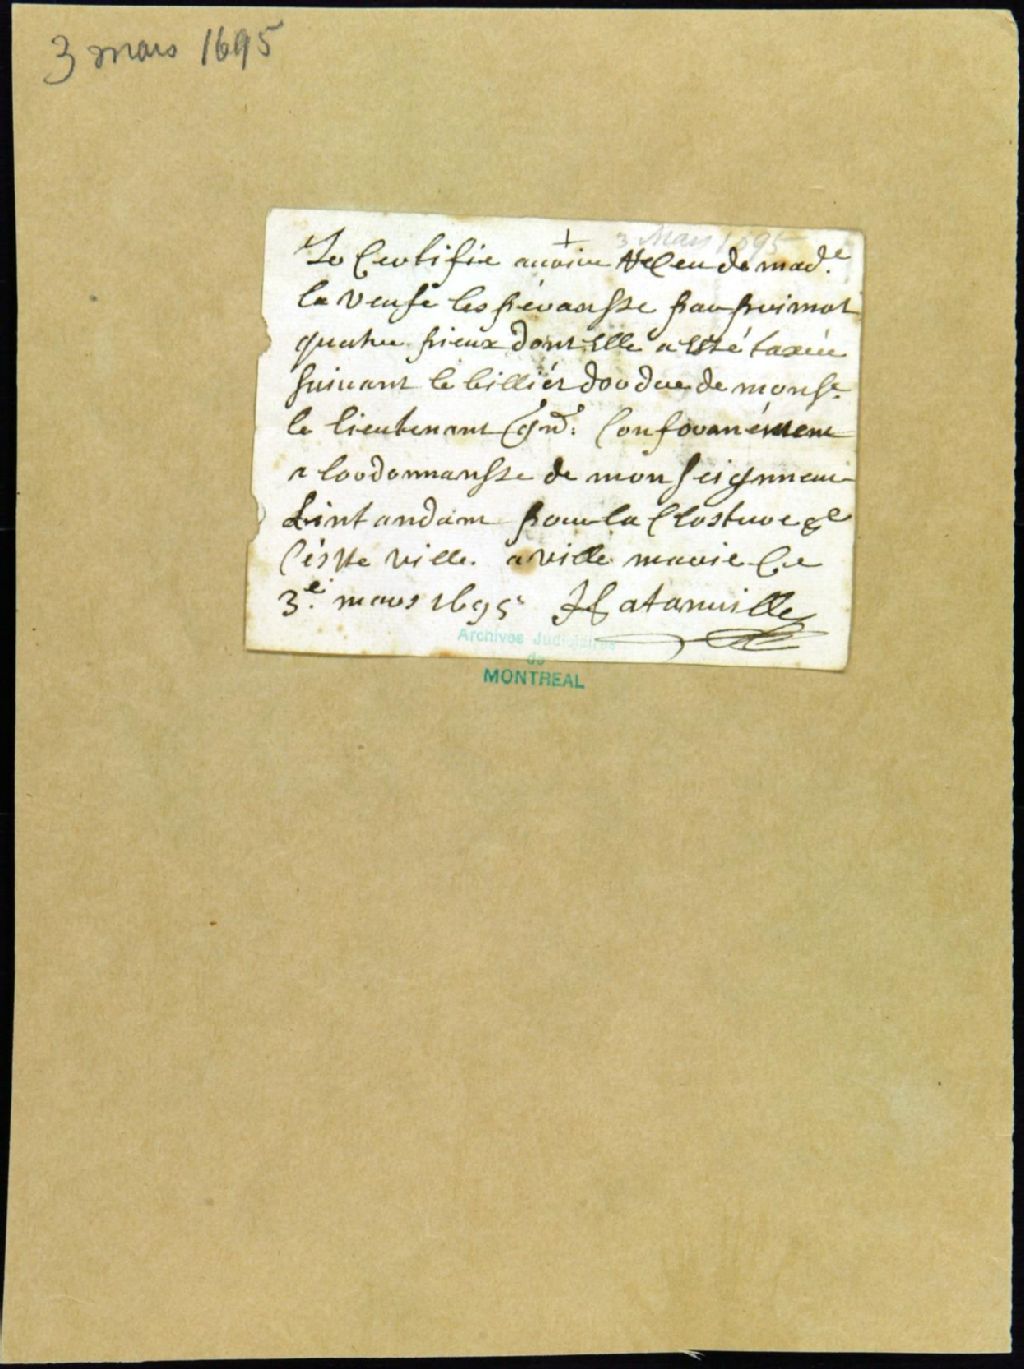 3 mars 1695
3 Mars 1695
Je Certifie auoire Receu de mad.e
la veufe lespéransse
quatre pieux dont Elle a Esté taxée
suiuant le billiét dordre de mons.r
le lieutenant Gñal. Conformément
a lordonnansse de monseigneur
Lintandant pour la Closture de
Céste ville. a ville marie Ce
3.e mars 1695 Hatanville
Archives Judiciaires
de
MONTREAL